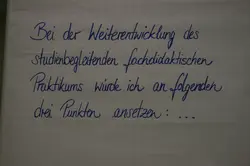 Bei der Weiterentwicklung des
studienbegleitenden fachdidaktischen
Praktikums würde ich an folgenden
drei Punkten ansetzen: ...